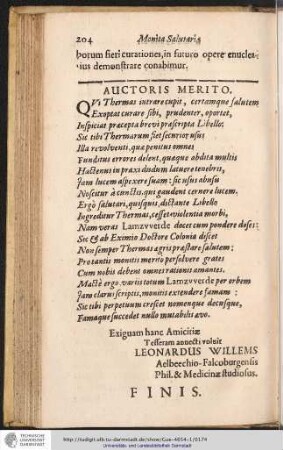 204 Monita Salutaria
borum fieri curationes, in futuro opere enucleatius demonstrare conabimur.
AUCTORIS MERITO.
QVi Thermas intrare cupit, certamque salutem
Exoptat curare sibi, prudenter, oportet,
Inspiciat præcepta brevi præscripta Libello:
Sic tibi Thermarum fiet securior usus
Illa revolventi, quæ penitus omnes
Funditus errores delent, quæque abdita multis
Hactenus in praxi dudum latuere tenebris,
Jam lucem aspexere suam: sic usus abusu
Noscitur à cunctis, qui gaudent cernere lucem.
Ergò salutari, quisquis, dictante Libello
Ingreditur Thermas, cesset violentia morbi,
Nam veras Lamzvverde docet cum pondere doses:
Sec & ab Eximio Doctore Colonia discet
Non semper Thermas ægris præstare salutem;
Pro tantis monitis merito persolvere grates
Cum nobis debent omnes rationis amantes.
Mactè ergo, variis totum Lamzvverde per orbem
Jam claru scriptis, monitis extendere famam:
Sic tibi perpetuum crescet nomenque decusque,
Famaque succedet nullo mutabilis ævo.
Exiguam hanc Amicitiæ
Tesseram annecti voluit
LEONARDUS WILLEMS
Aelbeechio-Falcoburgensis
Phil. & Medicinæ studiosus.
FINIS.
TECHNISCHE
UNIVERSITÄT
DARMSTADT
http://tudigit.ulb.tu-darmstadt.de/show/Gue-4654-1/0174
Universitäts- und Landesbibliothek Darmstadt